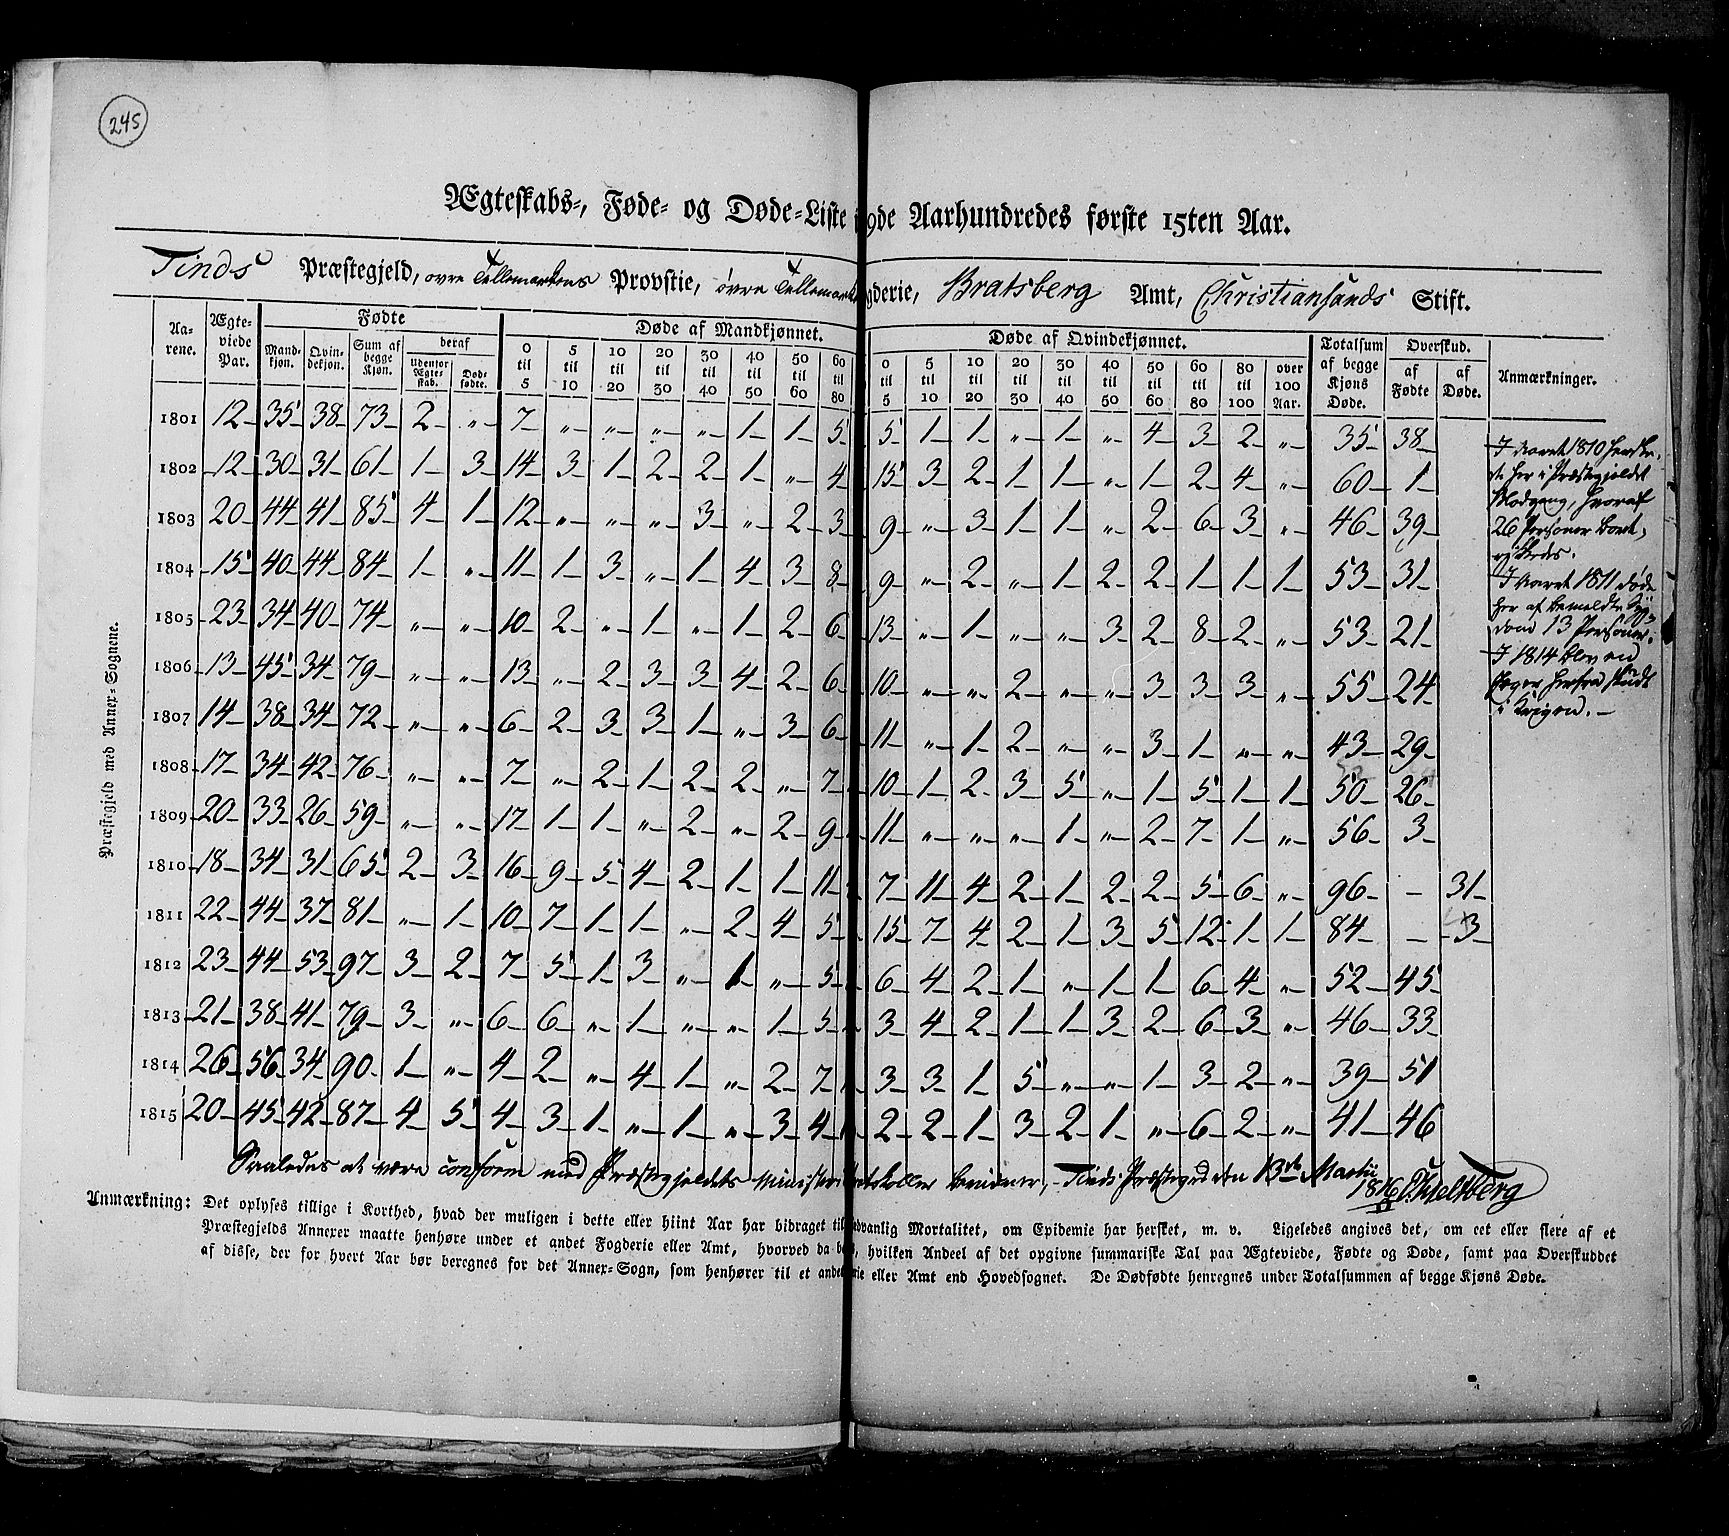 245
Ægteskabs-, Føde- og Døde-Liste 19de Aarhundredes første 15ten Aar.
Tinds Præstegjeld, øvre Tellemarkens Provstie, øvre Tellemark gderie, Bratsberg Amt, Christiansands Stift.
Aarene. Ægteviede Par. Fødte Døde af Mandkjønnet. Døde af Qvindekjønnet. Totalsum af begge Kjøns Døde. Overskud. Anmærkninger.
Mandkjøn. Qvindekjøn. Sum af begge Kjøn. deraf udenfor Ægteskab. Dødfødte. 0 til 5 5 til 10 10 til 20 20 til 30 30 til 40 40 til 50 50 til 60 60 til 80 0 til 5 5 til 10 10 til 20 20 til 30 30 til 40 40 til 50 50 til 60 60 til 80 80 til 100 over 100 Aar. af Fødte af Døde.
Præstegjeld med Annex-Sognene.
1801 12 35 38 73 2 „ 7 „ „ „ „ 1 1 5 5 1 1 „ 1 „ 4 3 2 „ 35 38
1802 12 30 31 61 1 3 14 3 1 2 2 1 „ 4 15 3 2 1 1 „ 1 2 4 „ 60 1
1803 20 44 41 85 4 1 12 „ „ „ 3 „ 2 3 9 „ 3 1 1 „ 2 6 3 „ 46 39
1804 15 40 44 84 1 „ 11 1 3 „ 1 4 3 8 9 „ 2 „ 1 2 2 1 1 1 53 31
1805 23 34 40 74 „ „ 10 2 „ 1 „ 1 2 6 13 „ 1 „ „ 3 2 8 2 „ 53 21
1806 13 45 34 79 „ „ 13 „ 2 3 3 4 2 6 10 „ „ 2 „ „ 3 3 3 „ 55 24
1807 14 38 34 72 „ „ 6 2 3 3 1 „ 3 6 11 „ 1 2 „ „ 3 1 „ „ 43 29
1808 17 34 42 76 „ „ 7 „ 2 1 2 2 „ 7 10 1 2 3 5 „ 1 5 1 1 50 26
1809 20 33 26 59 „ „ 17 1 1 „ 2 „ 2 9 11 „ „ „ 1 „ 2 7 1 „ 56 3
1810 18 34 31 65 2 3 16 9 5 4 2 1 1 11 7 11 4 2 1 2 2 5 6 „ 96 – 31
1811 22 44 37 81 „ 1 10 7 1 1 „ 2 4 5 15 7 4 2 1 3 5 12 1 1 84 – 3
1812 23 44 53 97 3 2 7 5 1 3 „ 1 „ 5 6 4 2 1 „ 1 1 6 4 „ 52 45
1813 21 38 41 79 3 „ 6 6 „ 1 „ „ 1 5 3 4 2 1 1 3 2 6 3 „ 46 33
1814 26 56 34 90 1 „ 4 2 „ 4 1 „ 2 7 3 3 1 5 „ „ 1 3 2 „ 39 51
1815 20 45 42 87 4 5 4 3 1 „ 1 „ 3 4 2 2 1 3 2 1 „ 6 2 „ 41 46
I Aaret 1810 herske-
de her i Præstegjeldet
Blodgang, hvoraf
26 Personer bort-
rykkedes.
I Aaret 1811 døde
her af bemeldte Syg-
dom 13 Personer.
I 1814 blev en
Jæger herfra skudt
i Krigen.
Saaledes at være conform med Præstegjeldets Ministerialprotokoller bevidner, Tinds Præstegaard den 13de Martii
1816
Anmærkning: Det oplyses tillige i Korthed, hvad der muligen i dette eller hiint Aar har bidraget til dvanlig Mortalitet, om Epidemie har hersket, m. v. Ligeledes angives det, om eet eller flere af et
Præstegjelds Annexer maatte henhøre under et andet Fogderie eller Amt, hvorved da be hvilken Andeel af det opgivne summariske Tal paa Ægteviede, Fødte og Døde, samt paa Overskuddet
af disse, der for hvert Aar bør beregnes for det Annex-Sogn, som henhører til et andet rie eller Amt end Hovedsognet. De Dødfødte henregnes under Totalsummen af begge Kjøns Døde.